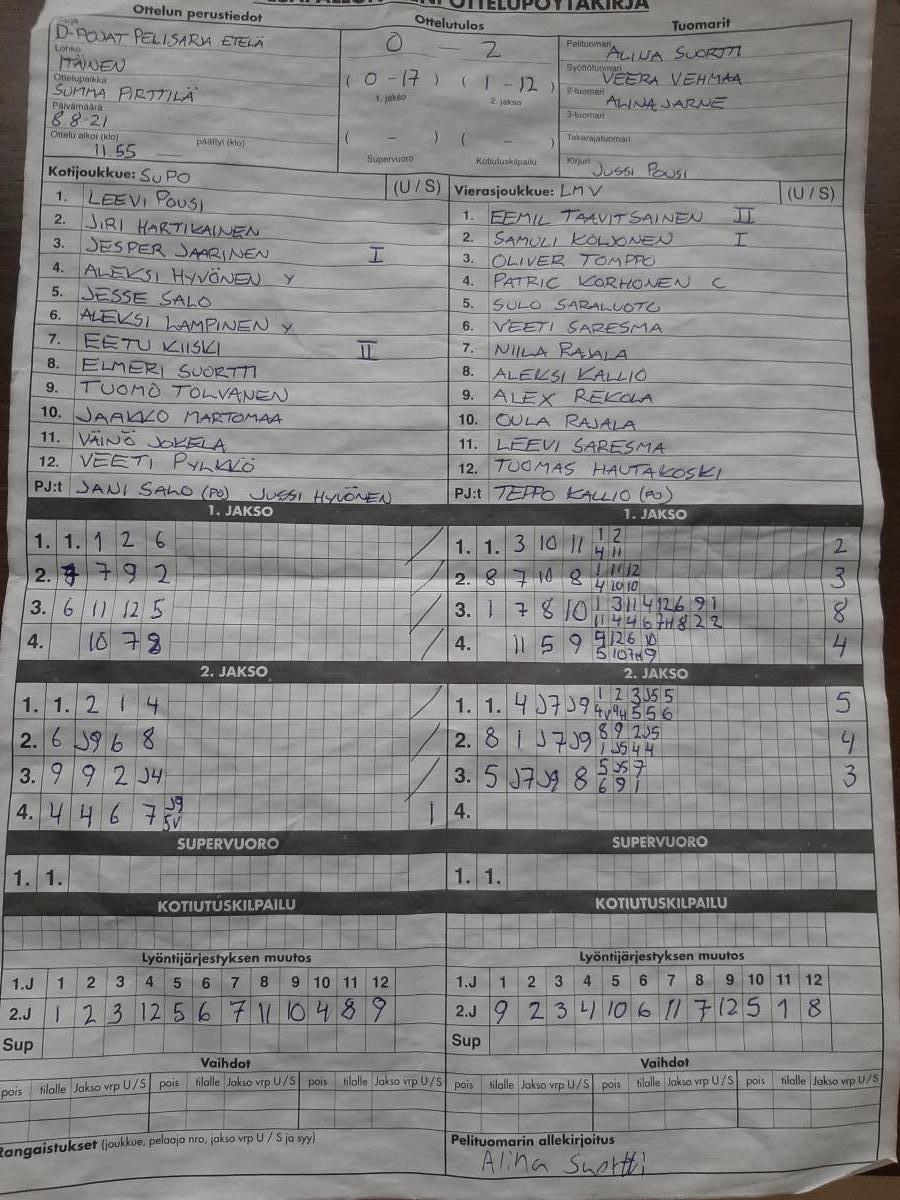 OTTELUPÖYTÄKIRJA
Ottelun perustiedot
Sarja
D-POJAT PELISARJA ETELÄ
Lohko
ITÄINEN
Ottelupaikka
SUMMA PIRTTILÄ
Päivämäärä
8.8-21
Ottelu alkoi (klo) päättyi (klo)
11.55
Ottelutulos
0 - 2
( 0 - 17 ) ( 1 - 12 )
1. jakso 2. jakso
( - ) ( - )
Supervuoro Kotiutuskilpailu
Tuomarit
Pelituomari ALINA SUORTTI
Syöttötuomari VEERA VEHMAA
2-tuomari ALINA JARNE
3-tuomari
Takarajatuomari
Kirjuri JUSSI POUSI
Kotijoukkue: SuPO (U / S)
1. LEEVI POUSI
2. JIRI HARTIKAINEN
3. JESPER JAARINEN I
4. ALEKSI HYVÖNEN Y
5. JESSE SALO
6. ALEKSI LAMPINEN Y
7. EETU KIISKI II
8. ELMERI SUORTTI
9. TUOMO TOLVANEN
10. JAAKKO MARTOMAA
11. VÄINÖ JOKELA
12. VEETI PYLKKÖ
PJ:t JANI SALO (PO) JUSSI HYVÖNEN
Vierasjoukkue: LMV (U / S)
1. EEMIL TAAVITSAINEN II
2. SAMULI KOLJONEN I
3. OLIVER TOMPPO
4. PATRIC KORHONEN C
5. SULO SARALUOTO
6. VEETI SARESMA
7. NIILA RAJALA
8. ALEKSI KALLIO
9. ALEX REKOLA
10. OULA RAJALA
11. LEEVI SARESMA
12. TUOMAS HAUTAKOSKI
PJ:t TEPPO KALLIO (PO)
1. JAKSO
1. 1. 1 2 6 /
2. 7 9 2 /
3. 6 11 12 5 /
4. 10 7 8 /
2. JAKSO
1. 1. 2 1 4 /
2. 6 J9 6 8 /
3. 9 9 2 J4 /
4. 4 4 6 7 J9 1
5V
SUPERVUORO
1. 1.
KOTIUTUSKILPAILU
1. JAKSO
1. 1. 3 10 11 1 2 2
4 11
2. 8 7 10 8 1 11 12 3
4 10 10
3. 1 7 8 10 1 3 11 4 12 6 9 1 8
11 4 4 6 7H 8 2 2
4. 11 5 9 9 12 6 10 4
5 10 7H 9
2. JAKSO
1. 1. 4 J7 J9 1 2 3 J5 5 5
4V 4H 5 5 6
2. 8 1 J7 J9 8 9 2 J5 4
1 J5 4 4
3. 5 J7 J9 8 5 J5 7 3
6 9 1
4.
SUPERVUORO
1. 1.
KOTIUTUSKILPAILU
Lyöntijärjestyksen muutos
1.J 1 2 3 4 5 6 7 8 9 10 11 12
2.J 1 2 3 12 5 6 7 11 10 4 8 9
Sup
Lyöntijärjestyksen muutos
1.J 1 2 3 4 5 6 7 8 9 10 11 12
2.J 9 2 3 4 10 6 11 7 12 5 1 8
Sup
Vaihdot
pois tilalle Jakso vrp U / S pois tilalle Jakso vrp U / S pois tilalle Jakso vrp U / S
Vaihdot
pois tilalle Jakso vrp U / S pois tilalle Jakso vrp U / S pois tilalle Jakso vrp U / S
Rangaistukset (joukkue, pelaaja nro, jakso vrp U / S ja syy)
Pelituomarin allekirjoitus
Alina Suortti